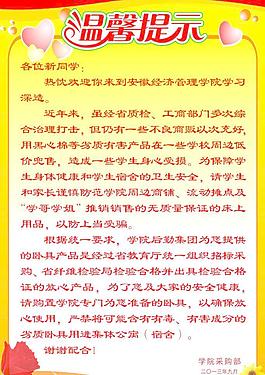 温馨提示
各位新同学：
热忱欢迎你来到安徽经济管理学院学习
深造。
近年来，虽经省质检、工商部门多次综
合治理打击，但仍有一些不良商贩以次充好，
用黑心棉等劣质有害产品在一些学校周边低
价兜售，造成一些学生身心受损。为保障学
生身体健康和学生宿舍的卫生安全，请学生
和家长谨慎防范学院周边商铺、流动摊点及
“学哥学姐”推销销售的无质量保证的床上
用品，以防上当受骗。
根据统一要求，学院后勤集团为您提供
的卧具产品是经过省教育厅统一组织招标采
购、省纤维检验局检验合格并出具检验合格
证的放心产品，为了您及大家的安全健康，
请购置学院专门为您准备的卧具，以确保放
心使用，严禁将可能含有有毒、有害成分的
劣质卧具用进集体公寓（宿舍）。
谢谢配合！
学院采购部
二〇一三年九月